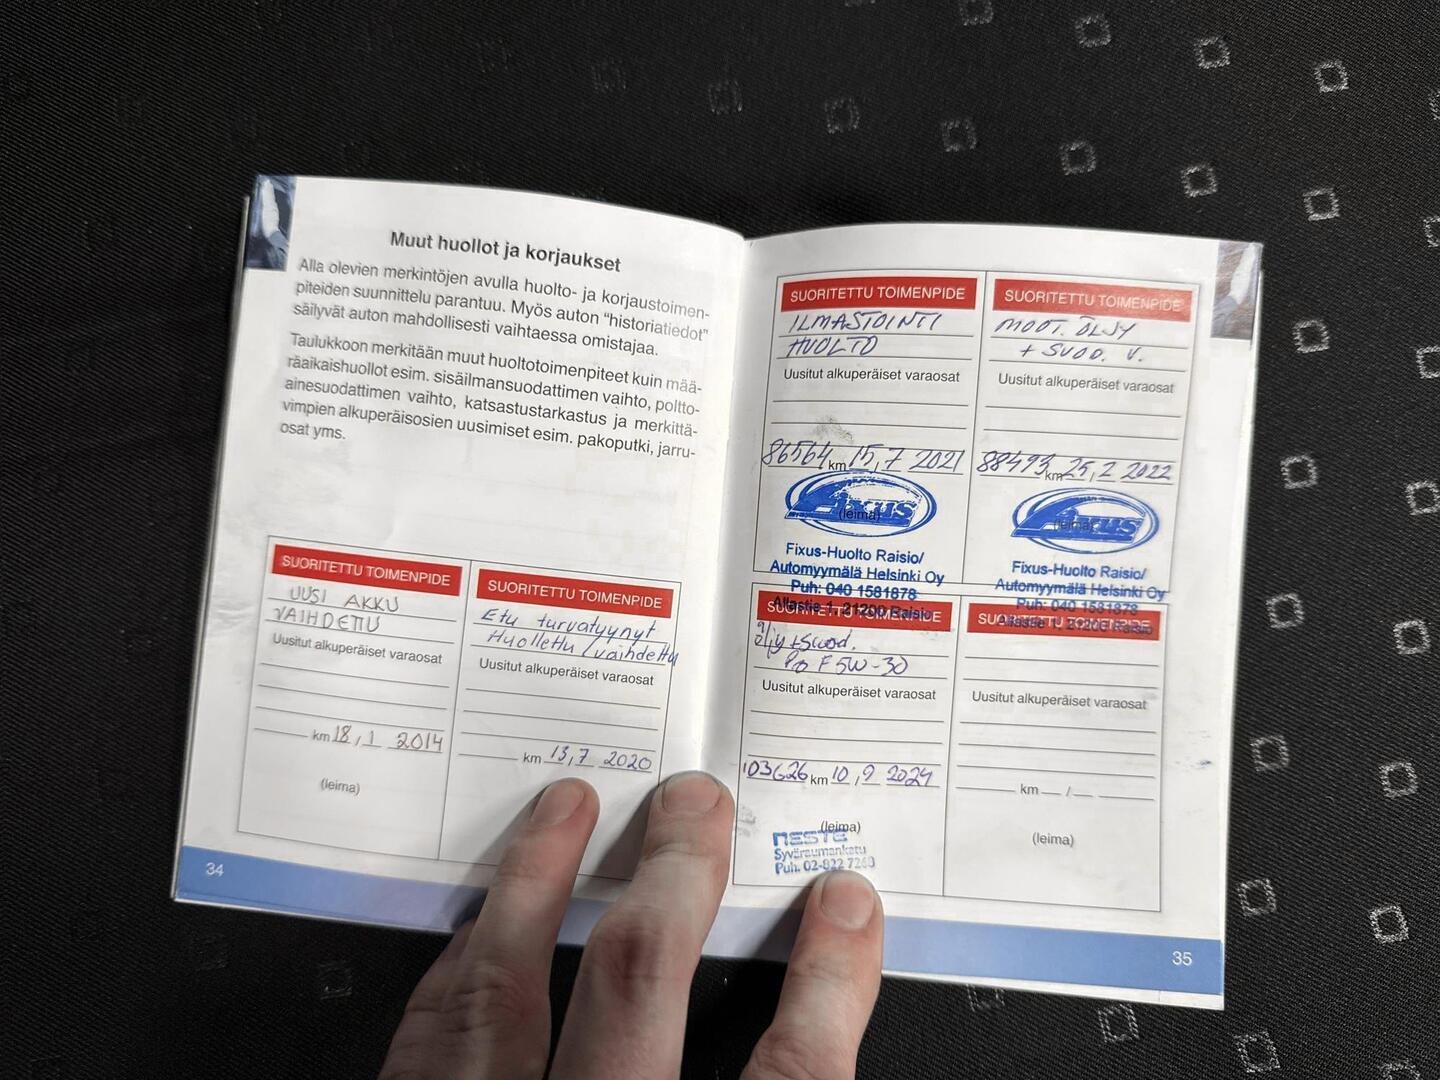 Muut huollot ja korjaukset
Alla olevien merkintöjen avulla huolto- ja korjaustoimen-
piteiden suunnittelu parantuu. Myös auton "historiatiedot"
säilyvät auton mahdollisesti vaihtaessa omistajaa.
Taulukkoon merkitään muut huoltotoimenpiteet kuin mää-
räaikaishuollot esim. sisäilmansuodattimen vaihto, poltto-
ainesuodattimen vaihto, katsastustarkastus ja merkittä-
vimpien alkuperäisosien uusimiset esim. pakoputki, jarru-
osat yms.
SUORITETTU TOIMENPIDE
UUSI AKKU
VAIHDETTU
Uusitut alkuperäiset varaosat
km 18, 1 2014
(leima)
SUORITETTU TOIMENPIDE
Etu turvatyynyt
Huollettu / vaihdettu
Uusitut alkuperäiset varaosat
km 13, 7 2020
34
SUORITETTU TOIMENPIDE
ILMASTOINTI
HUOLTO
Uusitut alkuperäiset varaosat
86564 km 15, 7 2021
(leima)
Fixus
Fixus-Huolto Raisio/
Automyymälä Helsinki Oy
Puh: 040 1581878
Allastie 1, 21200 Raisio
SUORITETTU TOIMENPIDE
MOOT. ÖLJY
+ SUOD. V.
Uusitut alkuperäiset varaosat
88493 km 25, 2 2022
(leima)
Fixus
Fixus-Huolto Raisio/
Automyymälä Helsinki Oy
Puh: 040 1581878
Allastie 1, 21200 Raisio
SUORITETTU TOIMENPIDE
öljy + suod.
F 5W-30
Uusitut alkuperäiset varaosat
103626 km 10, 9 2024
(leima)
NESTE
Syväraumankatu
Puh. 02-822 7260
SUORITETTU TOIMENPIDE
Uusitut alkuperäiset varaosat
km / 
(leima)
35